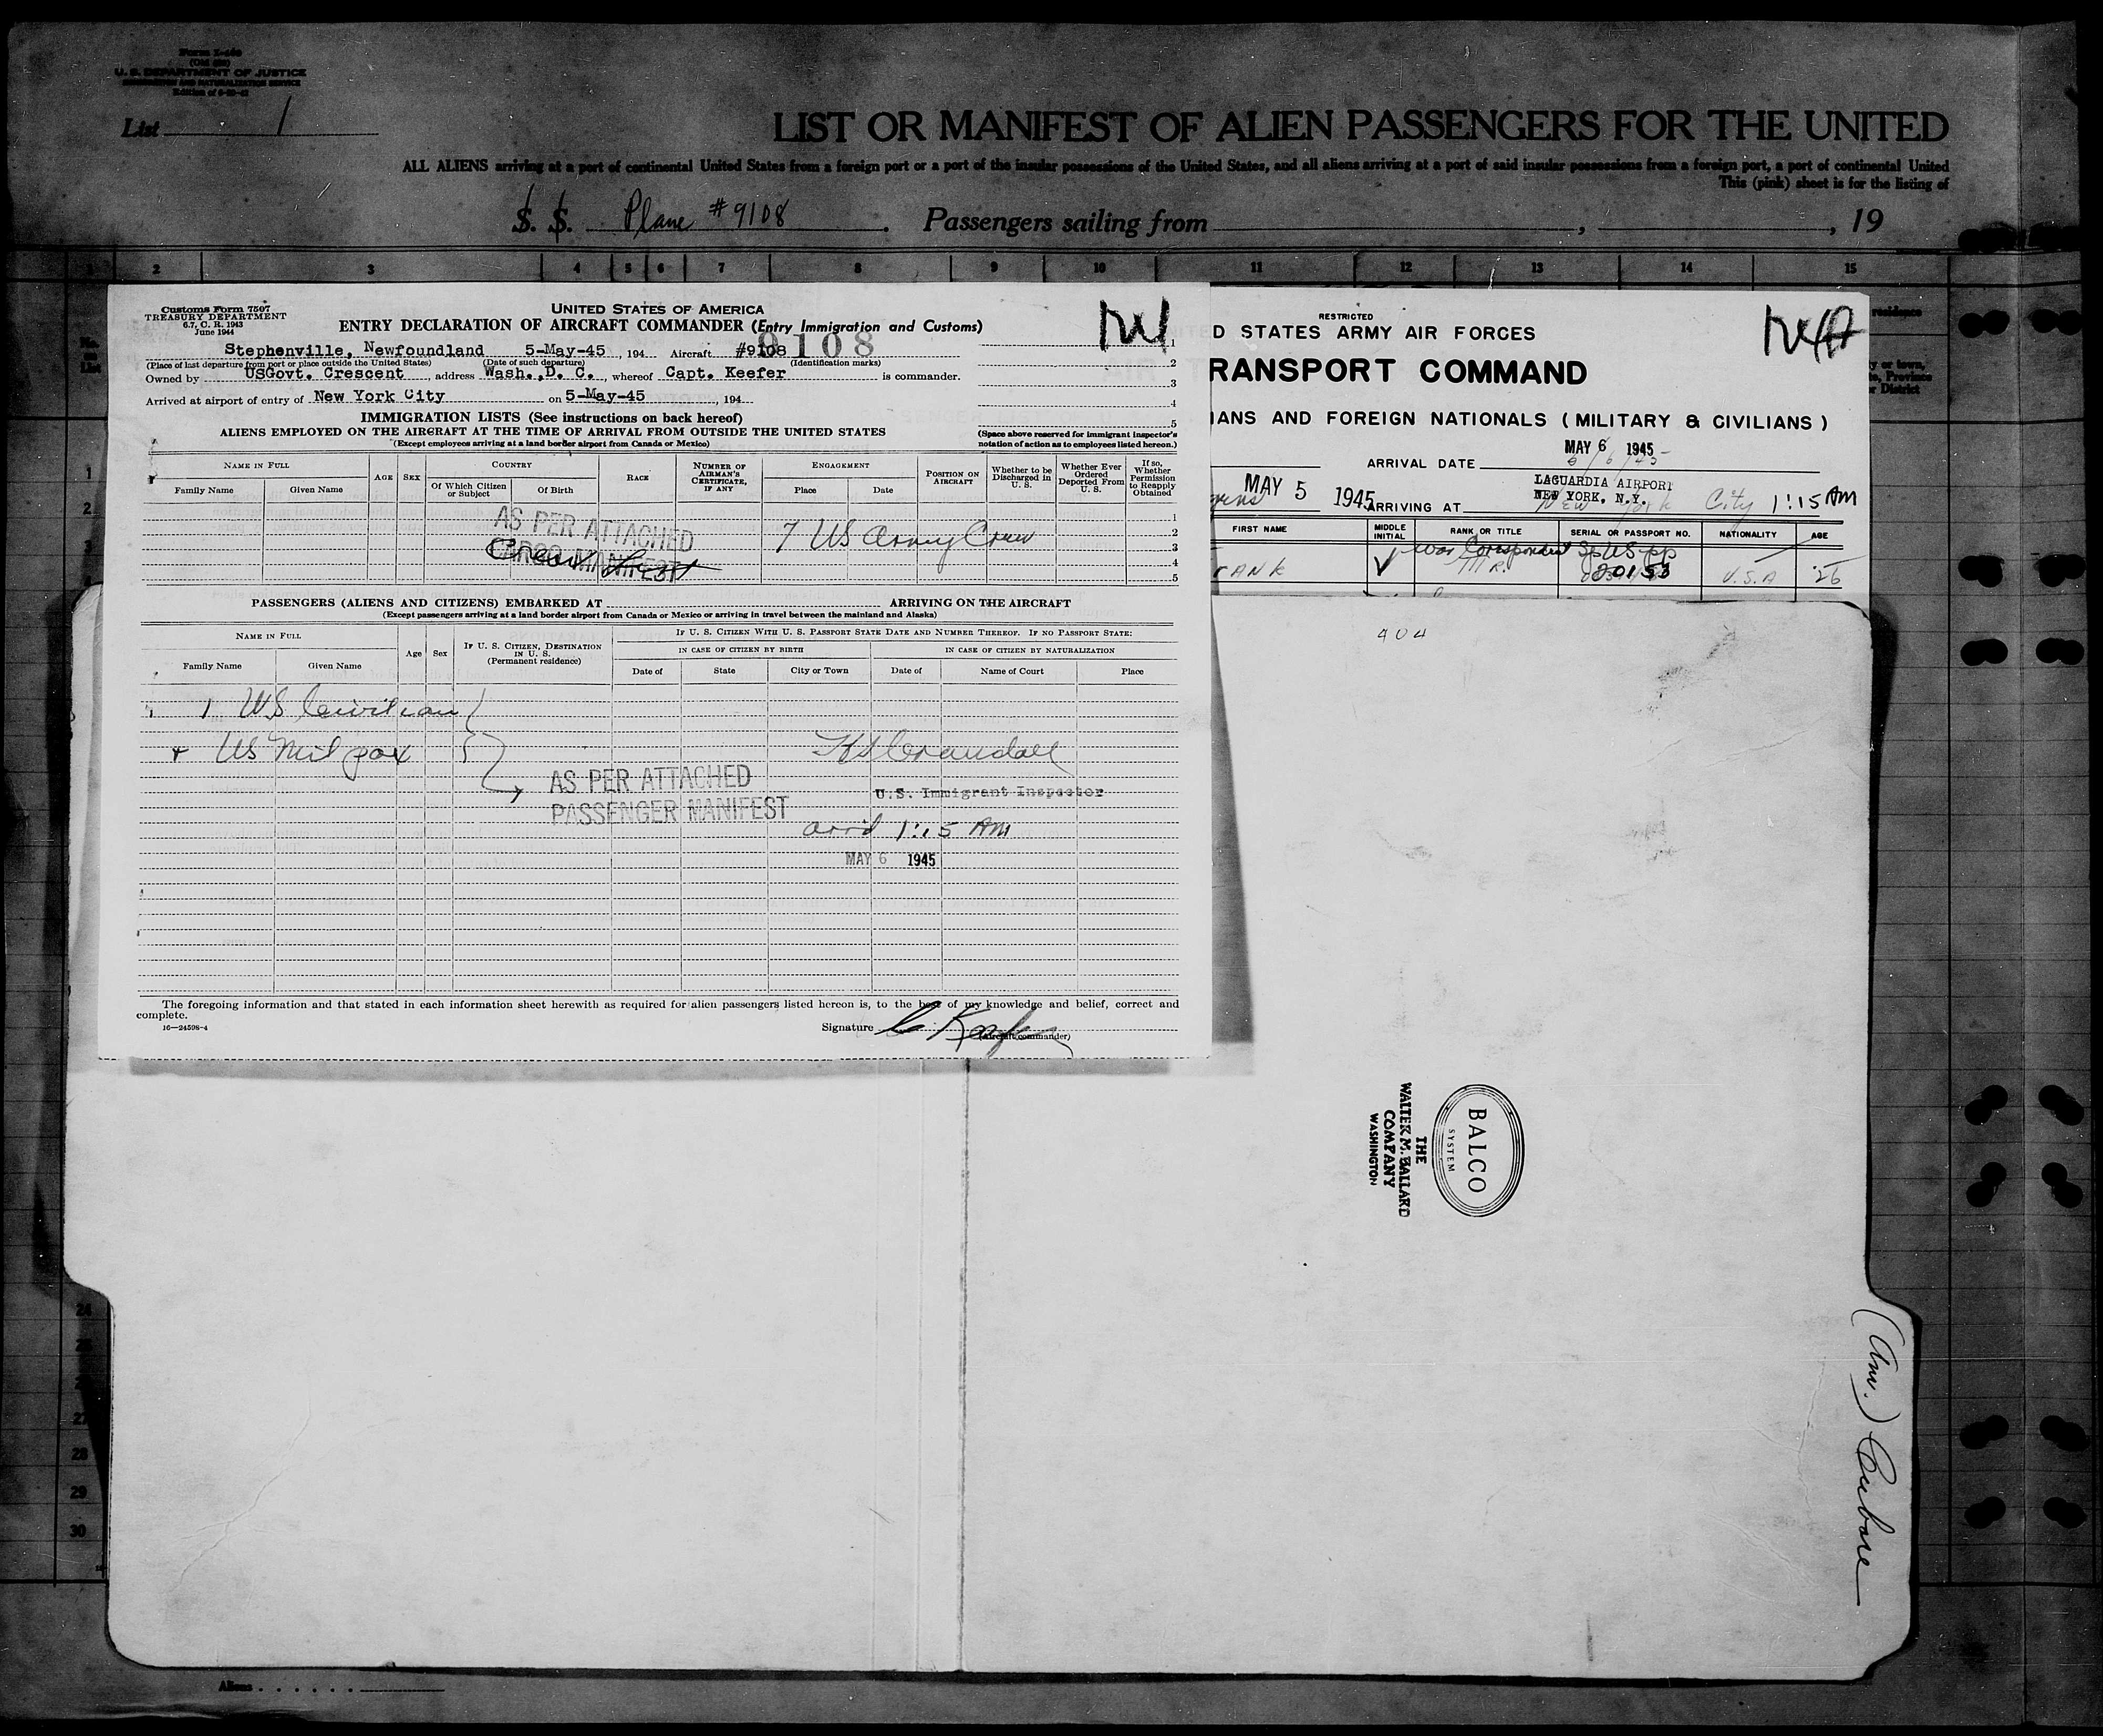 Form I-460
U. S. DEPARTMENT OF JUSTICE
IMMIGRATION AND NATURALIZATION SERVICE
List 1
LIST OR MANIFEST OF ALIEN PASSENGERS FOR THE UNITED
ALL ALIENS arriving at a port of continental United States from a foreign port or a port of the insular possessions of the United States, and all aliens arriving at a port of said insular possessions from a foreign port, a port of continental United
This (pink) sheet is for the listing of
S. S. Plane #9108. Passengers sailing from , , 19
1 2 3 4 5 6 7 8 9 10 11 12 13 14 15
Customs Form 7507
TREASURY DEPARTMENT
6.7, C. R. 1943
June 1944
UNITED STATES OF AMERICA
ENTRY DECLARATION OF AIRCRAFT COMMANDER (Entry Immigration and Customs)
9108
Stephenville, Newfoundland 5-May-45, 194 Aircraft #9108
(Place of last departure from port or place outside the United States) (Date of such departure) (Identification marks)
Owned by USGovt. Crescent, address Wash., D. C., whereof Capt. Keefer is commander.
Arrived at airport of entry of New York City on 5-May-45, 194
1
2
3
4
5
IMMIGRATION LISTS (See instructions on back hereof)
ALIENS EMPLOYED ON THE AIRCRAFT AT THE TIME OF ARRIVAL FROM OUTSIDE THE UNITED STATES
(Except employees arriving at a land border airport from Canada or Mexico)
(Space above reserved for immigrant inspector's
notation of action as to employees listed hereon.)
NAME IN FULL
Family Name Given Name
AGE SEX
COUNTRY
Of Which Citizen or Subject Of Birth
RACE
NUMBER OF AIRMAN'S CERTIFICATE, IF ANY
ENGAGEMENT
Place Date
POSITION ON AIRCRAFT
Whether to be Discharged in U. S.
Whether Ever Ordered Deported From U. S.
If so, Whether Permission to Reapply Obtained
AS PER ATTACHED
CARGO MANIFEST
Crew List
7 US Army Crew
1
2
3
4
5
PASSENGERS (ALIENS AND CITIZENS) EMBARKED AT ARRIVING ON THE AIRCRAFT
(Except passengers arriving at a land border airport from Canada or Mexico or arriving in travel between the mainland and Alaska)
NAME IN FULL
Family Name Given Name
Age Sex
IF U. S. CITIZEN, DESTINATION IN U. S.
(Permanent residence)
IF U. S. CITIZEN WITH U. S. PASSPORT STATE DATE AND NUMBER THEREOF. IF NO PASSPORT STATE:
IN CASE OF CITIZEN BY BIRTH IN CASE OF CITIZEN BY NATURALIZATION
Date of State City or Town Date of Name of Court Place
1 US Civilian
+ US Mil pax
AS PER ATTACHED
PASSENGER MANIFEST
Crandall
U.S. Immigrant Inspector
arr'd 1:15 AM
MAY 6 1945
The foregoing information and that stated in each information sheet herewith as required for alien passengers listed hereon is, to the best of my knowledge and belief, correct and
complete.
16—24598-4
Signature
(Aircraft commander)
RESTRICTED
D STATES ARMY AIR FORCES
RANSPORT COMMAND
IANS AND FOREIGN NATIONALS (MILITARY & CIVILIANS)
MAY 6 1945
ARRIVAL DATE 5/6/45
MAY 5 1945
LAGUARDIA AIRPORT
NEW YORK, N.Y.
ARRIVING AT New York City 1:15 AM
FIRST NAME MIDDLE INITIAL RANK OR TITLE SERIAL OR PASSPORT NO. NATIONALITY AGE
War Correspondent Sp US pp
RANK MR. 20153 U.S.A 26
404
BALCO
SYSTEM
THE
WALTER M. BALLARD
COMPANY
WASHINGTON
1
2
3
4
24
27
28
29
30
Aliens